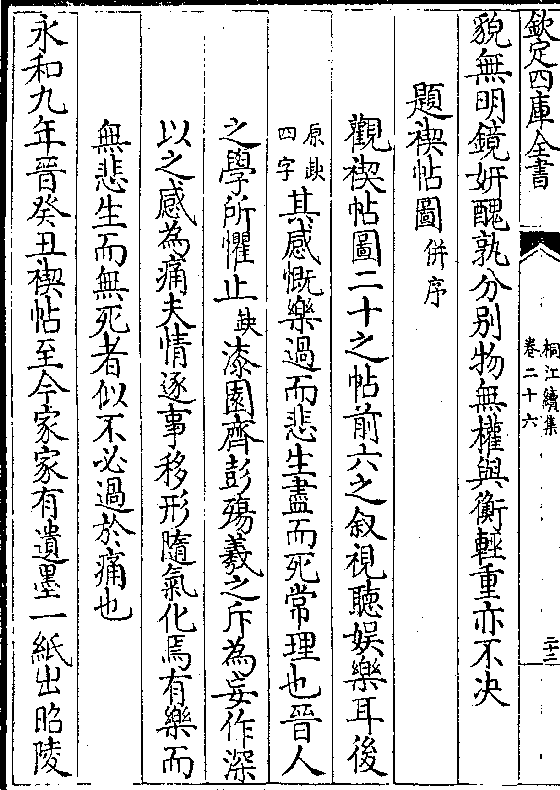 欽定四庫全書
桐江續集
卷二十六
二十三
貌無明鏡妍醜孰分別物無權與衡輕重亦不決
題禊帖圖併序
觀禊帖圖二十之帖前六之叙視聽娛樂耳後
原缺四字其感慨樂過而悲生盡而死常理也晉人
之學所懼止缺漆園齊彭殤羲之斥為妄作深
以之感為痛夫情逐事移形隨氣化焉有樂而
無悲生而無死者似不必過於痛也
永和九年晉癸丑禊帖至今家家有遺墨一紙出昭陵